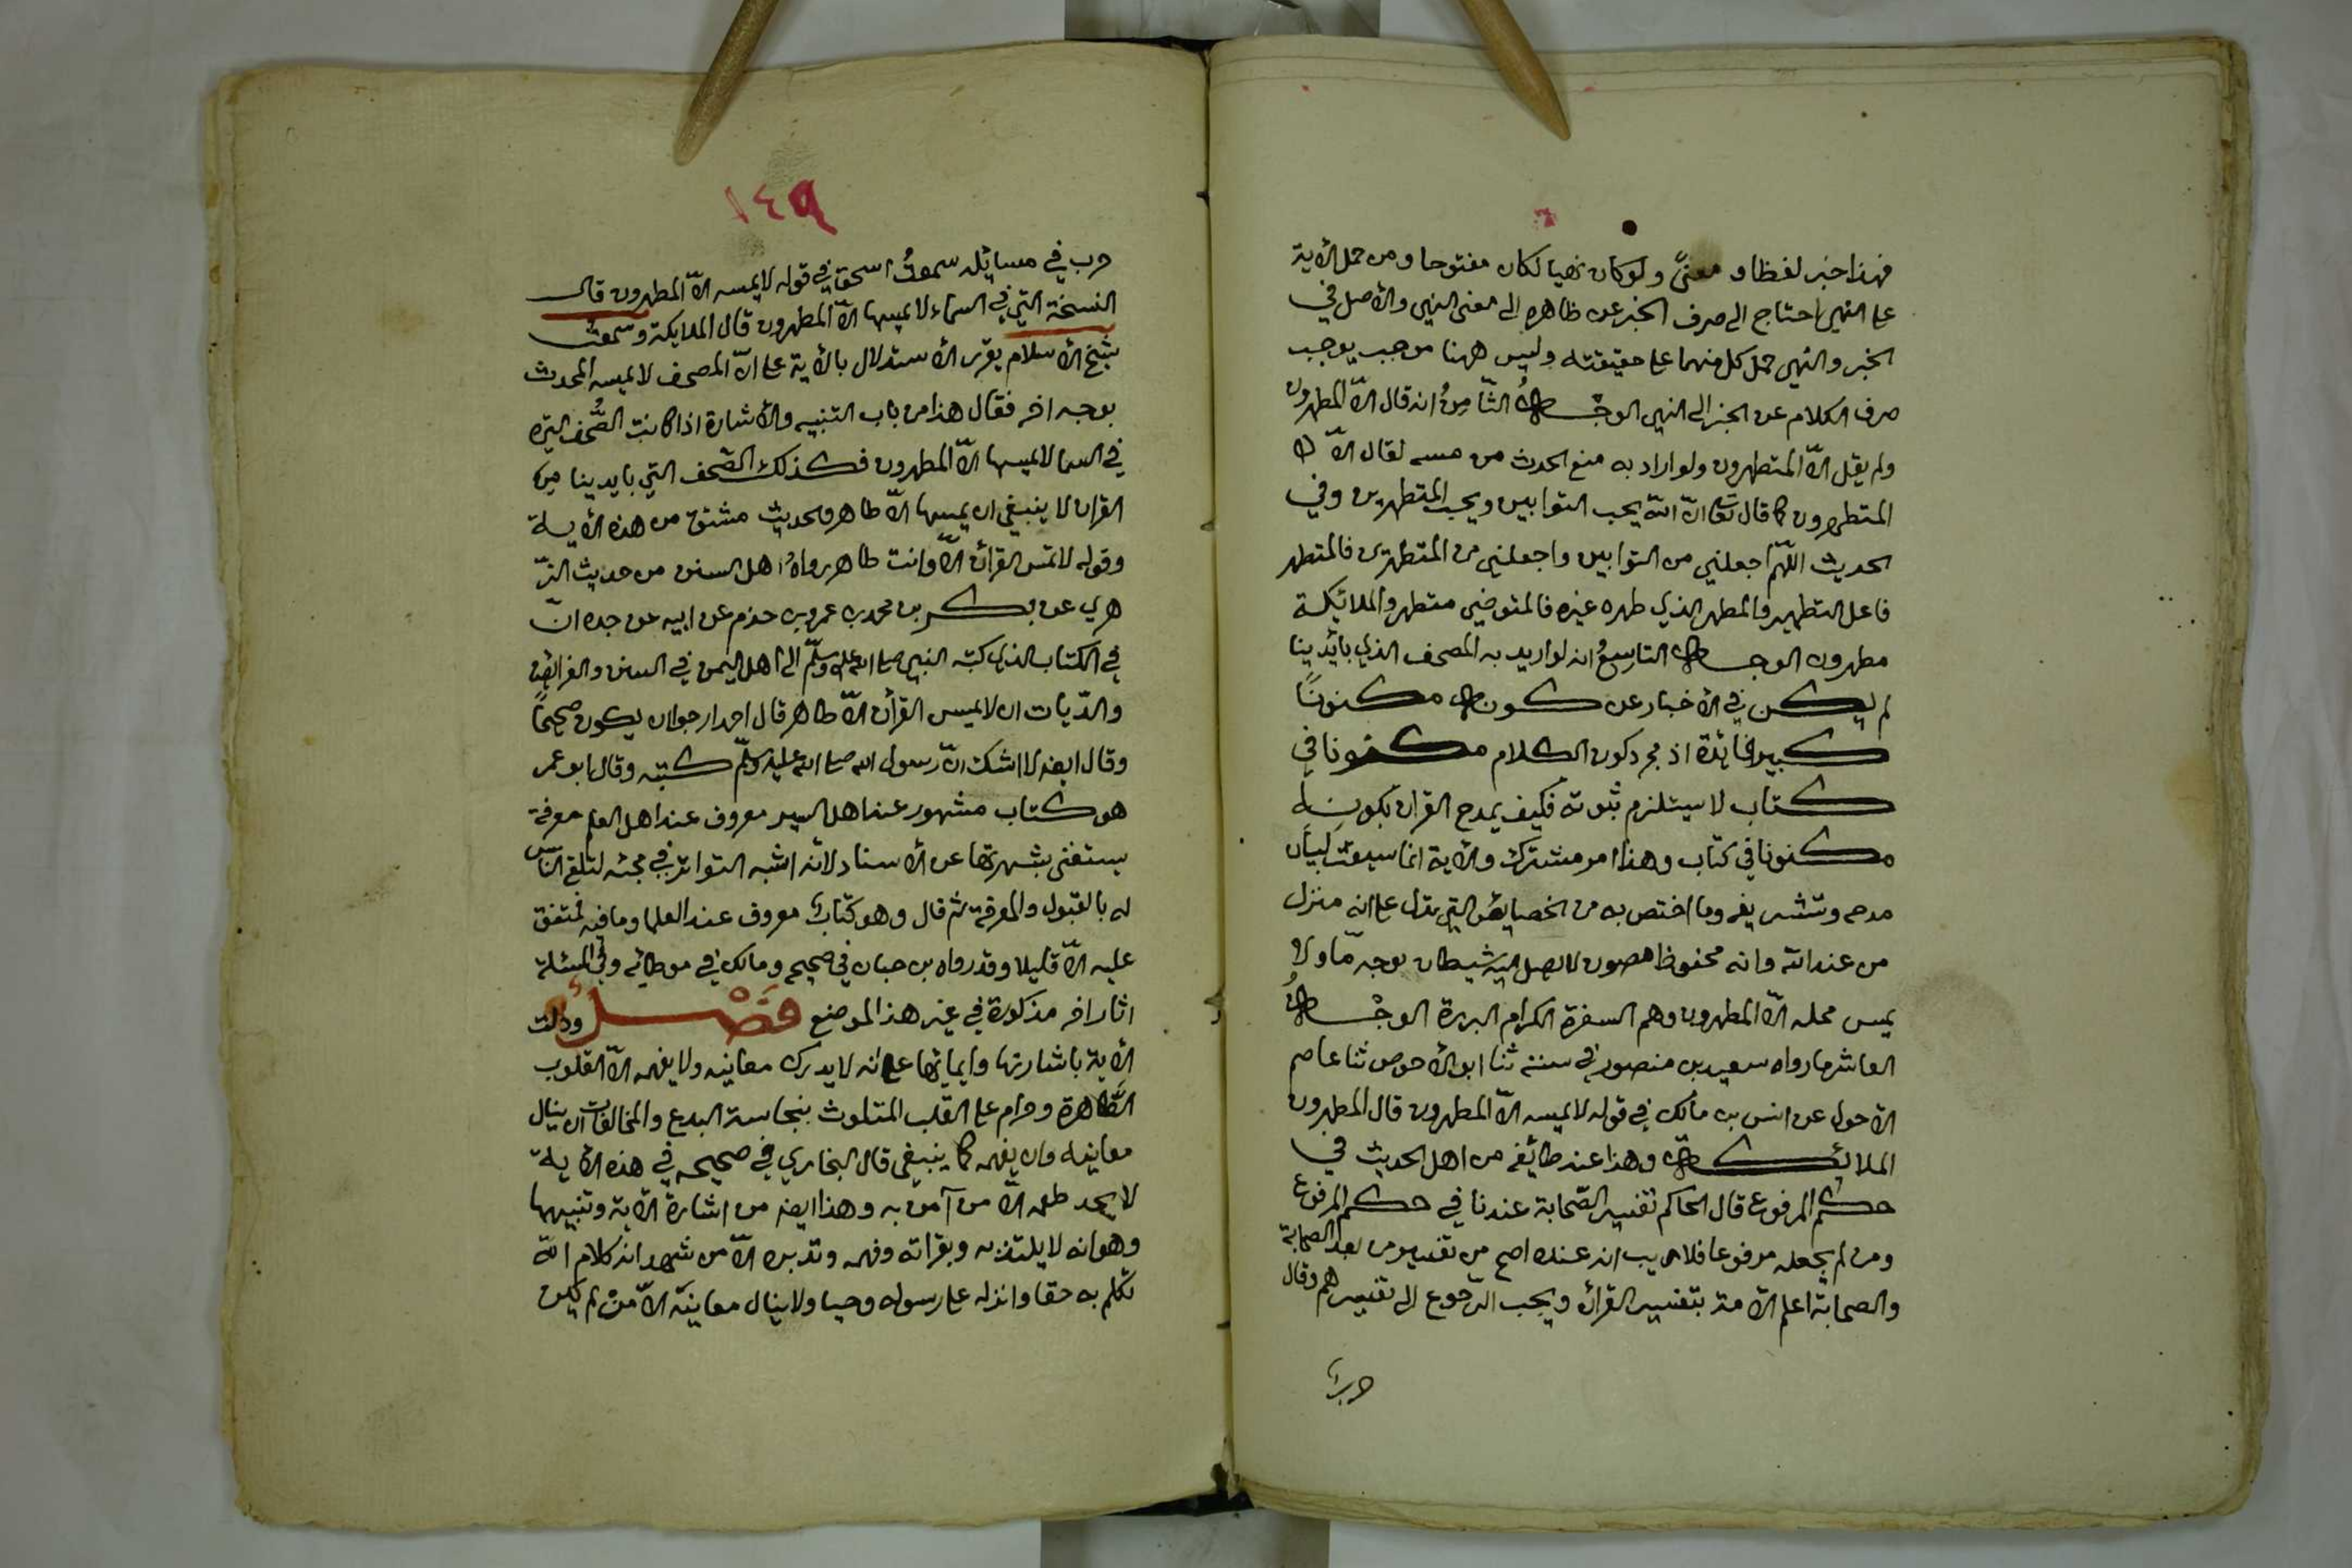 فهذا خبر لفظا ومعنىً ولو كان نهيا لكان مفتوحا ومن حمل الأية
على النهي احتاج الى صرف الخبر عن ظاهره الى معنى النهي والأصل في
الخبر والنهي حمل كل منهما على حقيقته وليس ههنا موجب يوجب
صرف الكلام عن الخبر الى النهي الوجه الثامنُ انه قال الّا المطهرون
ولم يقل الّا المتطهرون ولو اراد به منع المحدث من مسه لقال الّا
المتطهرون كما قال تعا انّ اللّه يحب التوابين ويحب المتطهرين وفي
الحديث اللّهمّ اجعلني من التوابين واجعلني من المتطهرين فالمتطهر
فاعل التطهير والمطهر الذي طهره غيره فالمتوضي متطهر والملائيكة
مطهرون الوجه التاسعُ انه لو اريد به المصحف الذي بأيدينا
لم يكن في الأخبار عن كونه مكنونًا
كبير فائدة اذ مجرد كون الكلام مكنونا في
كتاب لا سيتلزم ثبوته فكيف يمدح القران بكونه
مكنونا في كتاب وهذا امر مشترك والأية انما سيقت لبيان
مدحه وتشريفه وما اختص به من الخصايص التي تدل على انه منزل
من عند اللّه وانه محفوظ مصون لا يصل اليه شيطان بوجه مّا ولا
يمس محله الّا المطهرون وهم السفرة الكرام البررة الوجْهُ
العاشر ما رواه سعيد بن منصور في سننه ثنا ابو الأحوص ثنا عاصم
الأحول عن انس بن مالك في قوله لا يمسه الّا المطهرون قال المطهرون
الملائكة وهذا عند طائفة من اهل الحديث في
حكم المرفوع قال الحاكم تفسير الصّحابة عندنا في حكم المرفوع
ومن لم يجعله مرفوعا فلا ريب انه عنده اصح من تفسير من بعد الصحابة
والصحابة اعلم الأمة بتفسير القرأن ويجب الرّجوع الى تفسيرهم وقال
حرب
١٤٩
حرب في مسايله سمعتُ اسحق في قوله لا يمسه الّا المطهرون قال
النسخة التي في السماء لا يمسها الّا المطهرون قال الملايكة وسمعت
شيخ الأسلام يقرر الأستدلال بالأية على انّ المصحف لا يمسه المحدث
بوجه اخر فقال هذا من باب التنبيه والأشارة اذا كانت الصُّحف التي
في السما لا يمسها الّا المطهرون فكذلك الصّحف التي بايدينا من
القران لا ينبغي ان يمسها الّا طاهر والحديث مشتق من هذه الأية
وقوله لا تمس القرأن الّا وانت طاهر رواهُ اهل السنن من حديث الزّ
هري عن بكر بن محمد بن عمرو بن حزم عن ابيه عن جده انّ
في الكتاب الذي كتبه النبي صلى الله عليه وسلّم الى اهل اليمن في السنن والفرائض
والدّيات ان لا يمس القرأن الّا طاهر قال احمد ارجوا ان يكون صحيحًا
وقال ايضا لا اشك انّ رسول الله صلى الله عليه وسلّم كتبه وقال ابو عمر
هو كتاب مشهور عند اهل السير معروف عند اهل العلم معرفة
يستغنى بشهرتها عن الأسناد لأنه اشبه التواتر في مجئه لتلقي النّاس
له بالقبول والمعرفة ثم قال وهو كتاب معروف عند العلما وما فيه متفق
عليه الّا قليلا وقد رواه بن حبان في صحيحه ومالك في موطائه وفي المسئلة
اثار اخر مذكورة في غير هذا الموضع فَصْلٌ ودلت
الأية باشارتها وايمائها على انه لا يدرك معانيه ولا يفهمه الّا القلوب
الطّاهرة وحرام على القلب المتلوث بنجاسة البدع والمخالفات ان ينال
معانيه وان يفهمه كما ينبغي قال البخاري في صحيحه في هذه الأية
لا يجد طعمه الّا من آمن به وهذا ايضا من اشارة الأية وتنبيهها
وهو انه لا يلتذ به وبقراته وفهمه وتدبره الّا من شهد انه كلام اللّه
تكلم به حقا وانزله على رسوله وحيا ولا ينال معانيه الّا منْ لم يكن